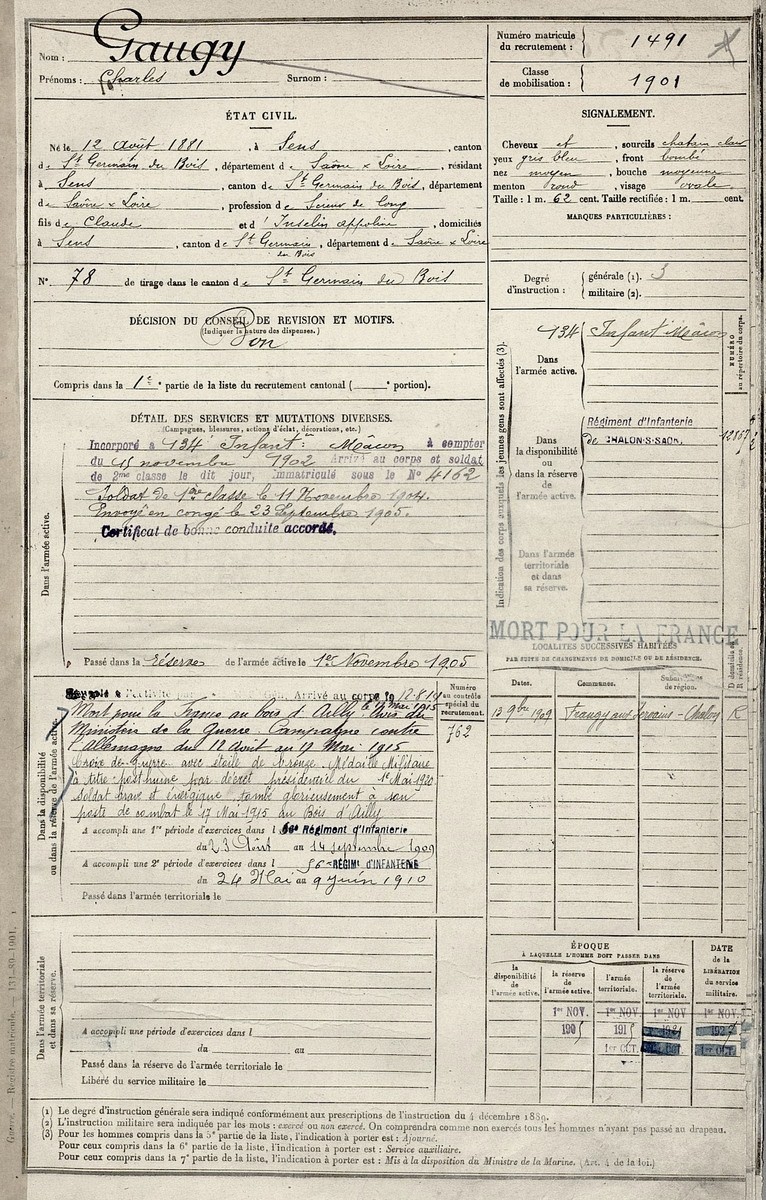 Nom : Gaugy
Prénoms : Charles Surnom :
Numéro matricule du recrutement : 1491
Classe de mobilisation : 1901
ÉTAT CIVIL.
Né le 12 Août 1881, à Sens, canton
de St Germain du Bois, département de Saône & Loire, résidant
à Sens, canton de St Germain du Bois, département
de Saône & Loire, profession de Scieur de long
fils de Claude et d' Inselin appoline, domiciliés
à Sens, canton de St Germain du Bois, département de Saône & Loire
N° 78 de tirage dans le canton de St Germain du Bois
SIGNALEMENT.
Cheveux et, sourcils chatain clair
yeux gris bleu, front bombé
nez moyen, bouche moyenne
menton rond, visage ovale
Taille : 1 m. 62 cent. Taille rectifiée : 1 m. cent.
MARQUES PARTICULIÈRES :
Degré d'instruction : générale (1). 3
militaire (2).
DÉCISION DU CONSEIL DE REVISION ET MOTIFS.
(Indiquer la nature des dispenses.)
Bon
Compris dans la 1re partie de la liste du recrutement cantonal ( portion).
DÉTAIL DES SERVICES ET MUTATIONS DIVERSES.
(Campagnes, blessures, actions d'éclat, décorations, etc.)
Dans l'armée active.
Incorporé a 134e Infantie Mâcon à compter
du 15 novembre 1902 Arrivé au corps et soldat
de 2me classe le dit jour, Immatriculé sous le N° 4162
Soldat de 1ère classe le 11 Novembre 1904.
Envoyé en congé le 23 Septembre 1905.
Certificat de bonne conduite accordé.
Passé dans la réserve de l'armée active le 1er Novembre 1905
Indication des corps auxquels les jeunes gens sont affectés (3).
NUMÉRO au répertoire du corps.
Dans l'armée active.
134 Infant Mâcon
Dans la disponibilité ou dans la réserve de l'armée active.
Régiment d'Infanterie
de CHALON-S-SAON.
Dans l'armée territoriale et dans sa réserve.
MORT POUR LA FRANCE
LOCALITÉS SUCCESSIVES HABITÉES
PAR SUITE DE CHANGEMENTS DE DOMICILE OU DE RÉSIDENCE.
Dates. Communes. Subdivisions de région. D domicile ou R résidence.
13 9bre 1909 Frangy aut Servains - Chalon R
Dans la disponibilité ou dans la réserve de l'armée active.
Numéro au contrôle spécial du recrutement.
762
Arrivé au corps le 12.8.14
Mort pour la France au bois d'Ailly le 17 Mai 1915 Avis du
Ministère de la Guerre. Campagne contre
l'Allemagne du 12 Août au 17 Mai 1915
Croix de guerre avec étoile de bronze. Médaille Militaire
à titre posthume par décret présidentiel du 1er Mai 1920
Soldat brave et énergique tombé glorieusement à son
poste de combat le 17 Mai 1915 au Bois d'Ailly
A accompli une 1re période d'exercices dans l 56e Régiment d'Infanterie
du 23 Août au 14 septembre 1909
A accompli une 2e période d'exercices dans l 56e RÉGIMt D'INFANTERIE
du 24 Mai au 9 juin 1910
Passé dans l'armée territoriale le
Dans l'armée territoriale et dans sa réserve.
A accompli une période d'exercices dans l
du au
Passé dans la réserve de l'armée territoriale le
Libéré du service militaire le
ÉPOQUE
À LAQUELLE L'HOMME DOIT PASSER DANS
DATE DE LA LIBÉRATION du service militaire.
la disponibilité de l'armée active. la réserve de l'armée active. l'armée territoriale. la réserve de l'armée territoriale.
1er NOV. 1er NOV. 1er NOV 1er NOV.
1905 1915 1921 1927
1er OCT. 1er OCT.
(1) Le degré d'instruction générale sera indiqué conformément aux prescriptions de l'instruction du 4 décembre 1889.
(2) L'instruction militaire sera indiquée par les mots : exercé ou non exercé. On comprendra comme non exercés tous les hommes n'ayant pas passé au drapeau.
(3) Pour les hommes compris dans la 5e partie de la liste, l'indication à porter est : Ajourné.
Pour ceux compris dans la 6e partie de la liste, l'indication à porter est : Service auxiliaire.
Pour ceux compris dans la 7e partie de la liste, l'indication à porter est : Mis à la disposition du Ministre de la Marine. (Art. 4 de la loi.)
Guerre. — Registre matricule. — 131-80-1901.